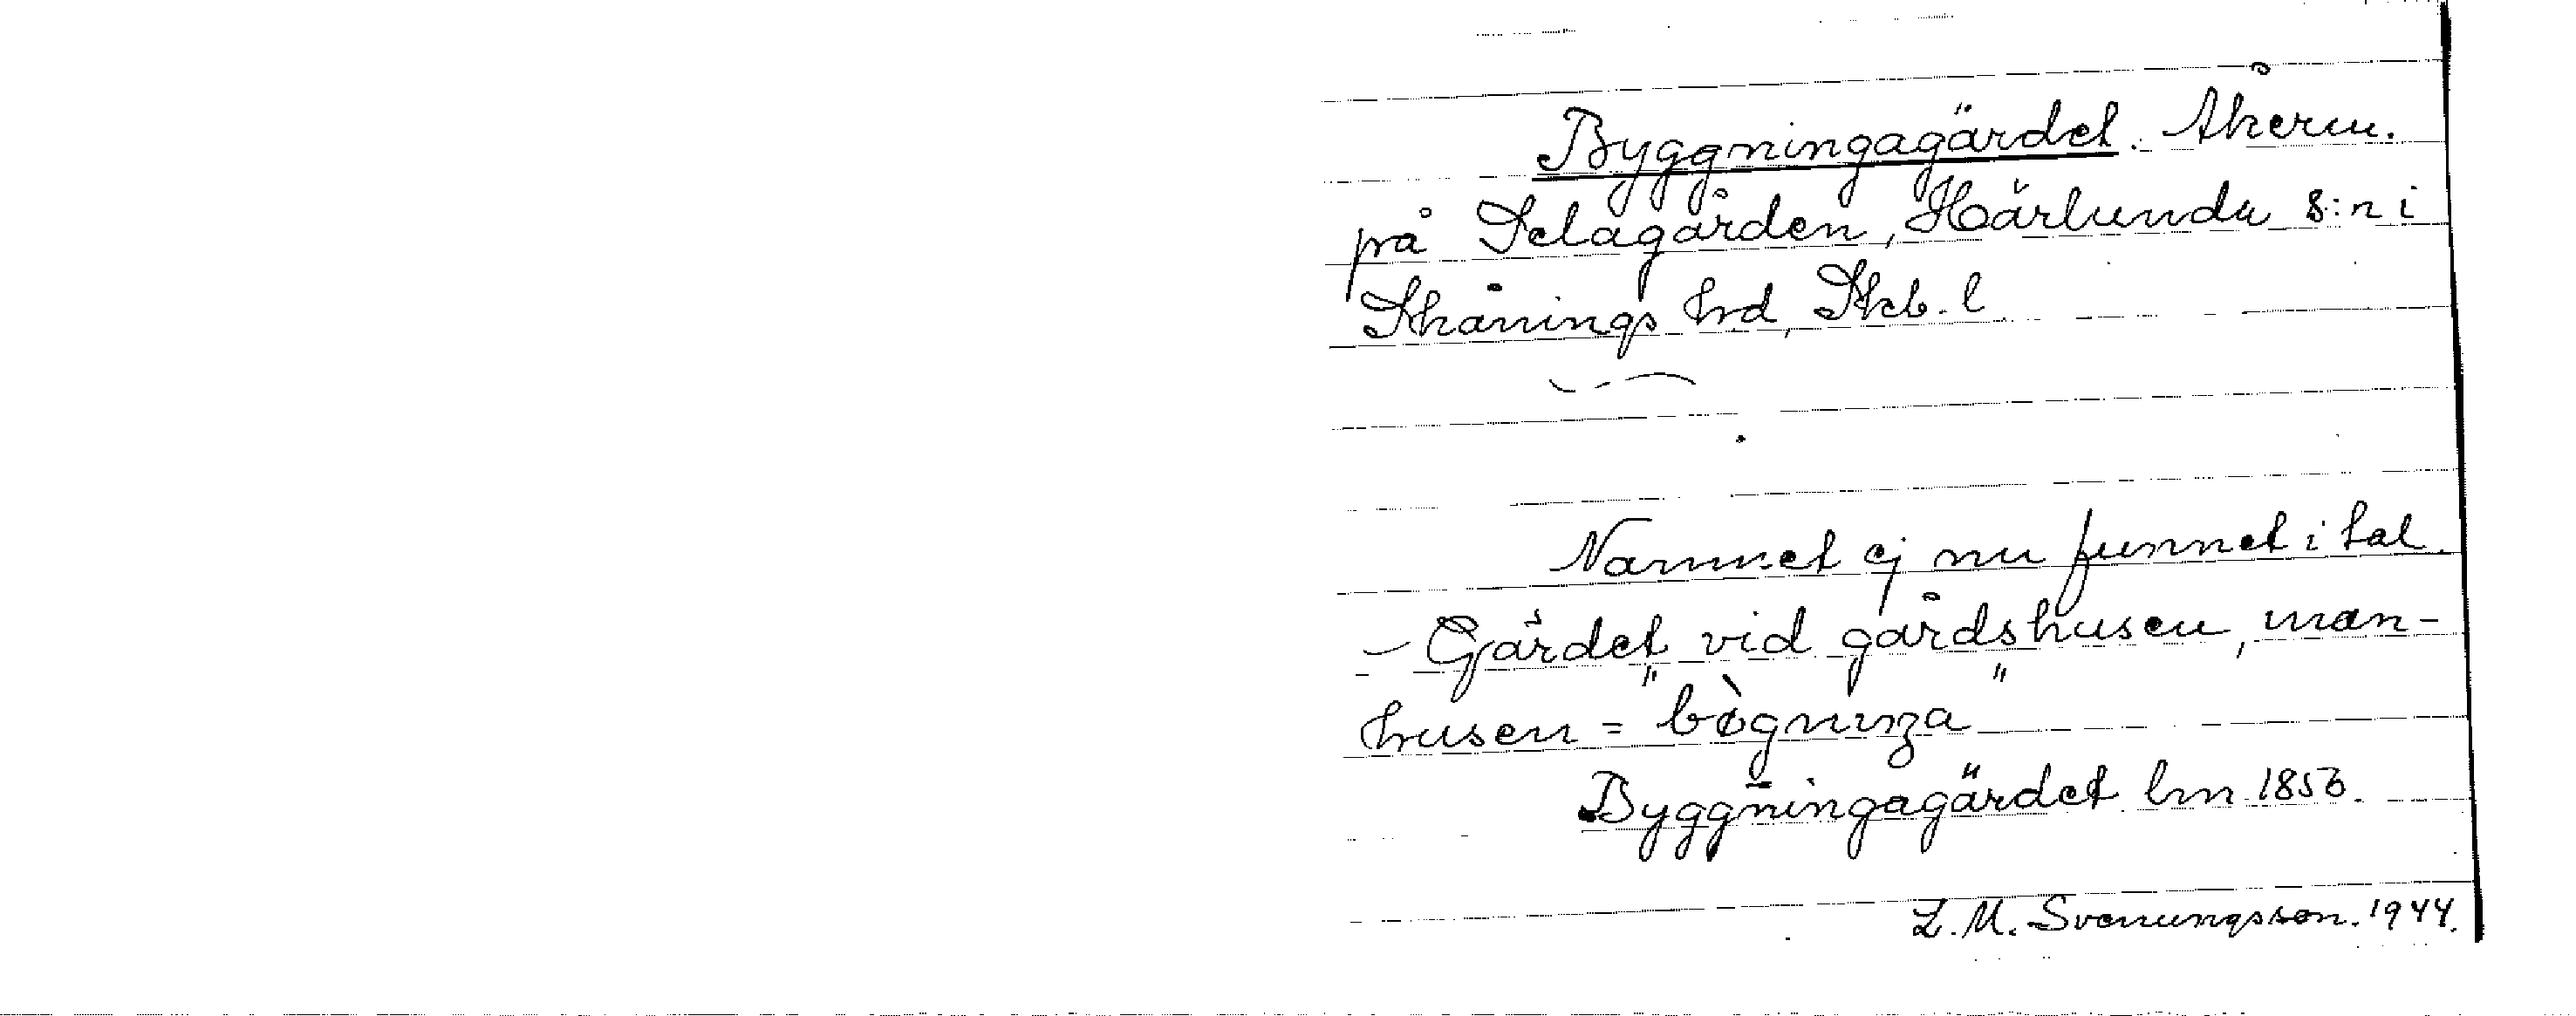 Byggningagärdet. Åkerm.
på Selagården, Härlunda s:n i
Skånings hrd, Skb. l
Namnet ej nu funnet i tal.
– Gärdet vid gårdshusen, man-
husen = "bògniŋa"
Byggningagärdet lm 1856.
L. M. Svenungsson. 1944.